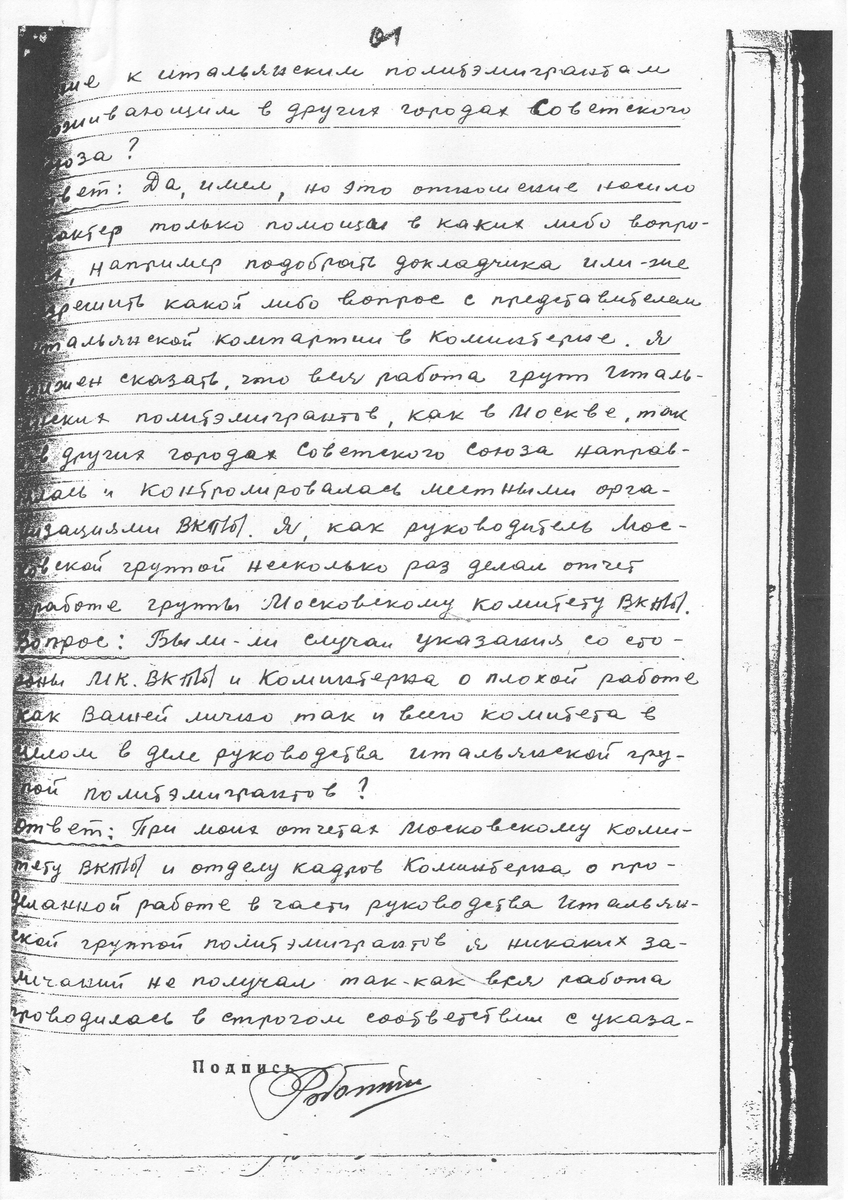 ние к итальянским политэмигрантам
живающим в других городах Советского
юза?
вет: Да, имел, но это отношение носило
рактер только помощи в каких либо вопро-
ах, например подобрать докладчика или-же
зрешить какой либо вопрос с представителем
тальянской компартии в Коминтерне. Я
лжен сказать, что вся работа групп италь-
янских политэмигрантов, как в Москве, так
в других городах Советского Союза направ-
лялась и контролировалась местными орга-
низациями ВКП/б/. Я, как руководитель Мос-
ковской группой несколько раз делал отчет
о работе группы Московскому комитету ВКП/б/.
Вопрос: Были-ли случаи указания со сто-
роны МК. ВКП/б/ и Коминтерна о плохой работе
как Вашей лично так и всего комитета в
целом в деле руководства итальянской гру-
пой политэмигрантов?
Ответ: При моих отчетах Московскому коми-
тету ВКП/б/ и отделу кадров Коминтерна о про-
деланной работе в части руководства итальян-
ской группой политэмигрантов я никаких за-
мичаний не получал так-как вся работа
проводилась в строгом соответствии с указа-
Подпись Роботти